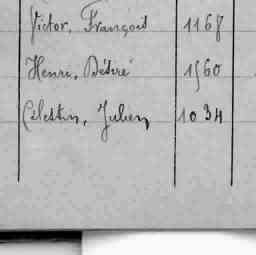 Victor, François 1168
Henri, Désiré 1560
Célestin, Julien 1034